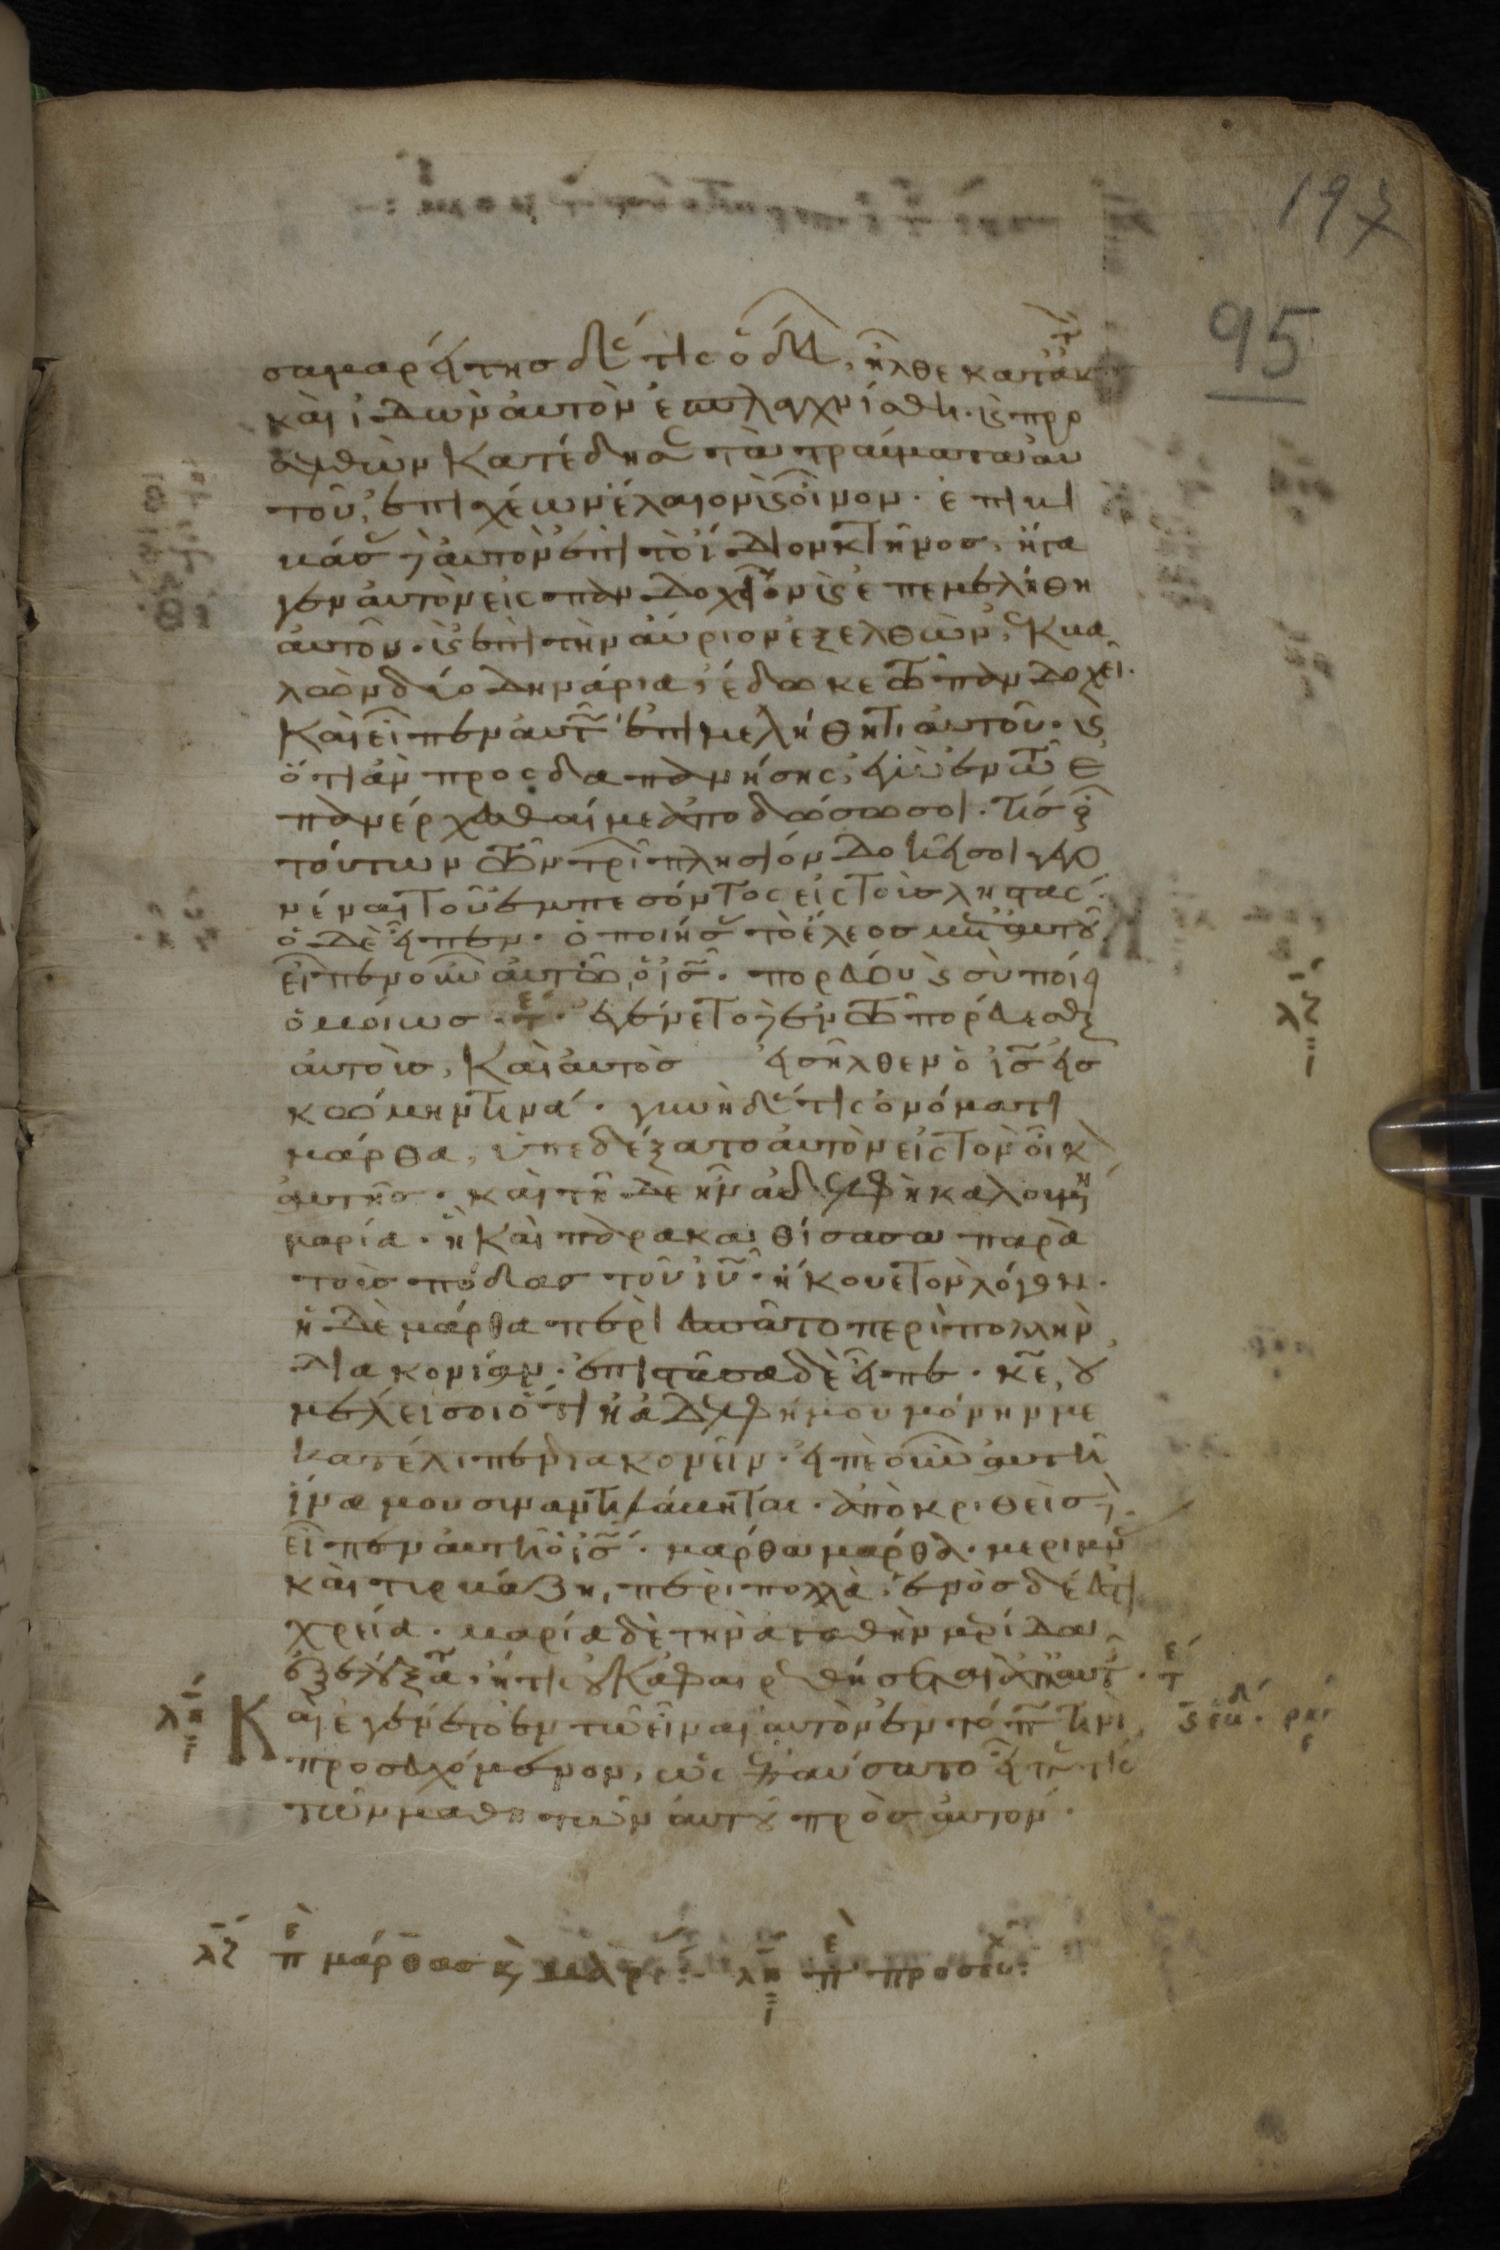 197
95
σαμαρείτης δέ τις ὁδεύων, ἦλθε κατ' αὐτὸν
καὶ ἰδὼν αὐτὸν ἐσπλαγχνίσθη· καὶ προ
σελθὼν κατέδησε τὰ τραύματα αὐ
τοῦ, ἐπιχέων ἔλαιον καὶ οἶνον· ἐπιβι
βάσας δὲ αὐτὸν ἐπὶ τὸ ἴδιον κτῆνος, ἤγα
γεν αὐτὸν εἰς πανδοχεῖον καὶ ἐπεμελήθη
αὐτοῦ· καὶ ἐπὶ τὴν αὔριον ἐξελθὼν, ἐκβα
λὼν δύο δηνάρια, ἔδωκε τῶ πανδοχεῖ·
Καὶ εἶπεν αὐτῶ ἐπιμελήθητι αὐτοῦ· καὶ
ὅτι ἂν προσδαπανήσης, ἐγὼ ἐν τῶ ἐ
πανέρχεσθαί με ἀποδώσω σοι· τίς οὖν
τούτων τῶν τριῶν πλησίον δοκεῖ σοι γεγο
νέναι τοῦ ἐμπεσόντος εἰς τοὺς ληστάς·
ὁ δὲ εἶπεν· ὁ ποιήσας τὸ ἔλεος μετ' αὐτοῦ
εἶπεν οὖν αὐτῶ ὁ ις· πορεύου καὶ σὺ ποίει
ὁμοίως· τε· ἐγένετο δὲ ἐν τῶ πορεύεσθαι
λζ
αὐτοὺς, Καὶ αὐτὸς εἰσῆλθεν ὁ ις εἰς
κώμην τινά· γυνὴ δέ τις ὀνόματι
μάρθα, ὑπεδέξατο αὐτὸν εἰς τὸν οἶκον
αὐτῆς· καὶ τῆδε ἦν ἀδελφὴ καλουμένη
μαρία· ἣ Καὶ παρακαθίσασα παρὰ
τοὺς πόδας τοῦ ιυ· ἤκουε τὸν λόγον·
ἡ δὲ μάρθα περιεσπᾶτο περὶ πολλὴν
διακονίαν· ἐπιστᾶσα δὲ εἶπε· κε, οὐ
μέλει σοι ὅτι ἡ ἀδελφή μου μόνην με
κατέλιπεν διακονεῖν· εἰπὲ οὖν αὐτῆ
ἵνα μου συναντιλάβηται· ἀποκριθεὶς δὲ
εἶπεν αὐτῆ ὁ ις· μάρθα μάρθα· μεριμνᾶς
καὶ τυρβάζη, περὶ πολλὰ, ἑνὸς δέ ἐστι
χρεία· μαρία δὲ τὴν ἀγαθὴν μερίδα
ἐξελέξατο, ἥτις οὐκ ἀφαιρεθήσεται ἀπ' αὐτῆς· τε
λη Καὶ ἐγένετο ἐν τῶ εἶναι αὐτὸν ἐν τόπω τινὶ
προσευχόμενον, ὡς ἐπαύσατο εἶπέ τις
τῶν μαθητῶν αὐτοῦ πρὸς αὐτόν·
λζ πε μάρθας καὶ μαρί· λη πε προσευχ: